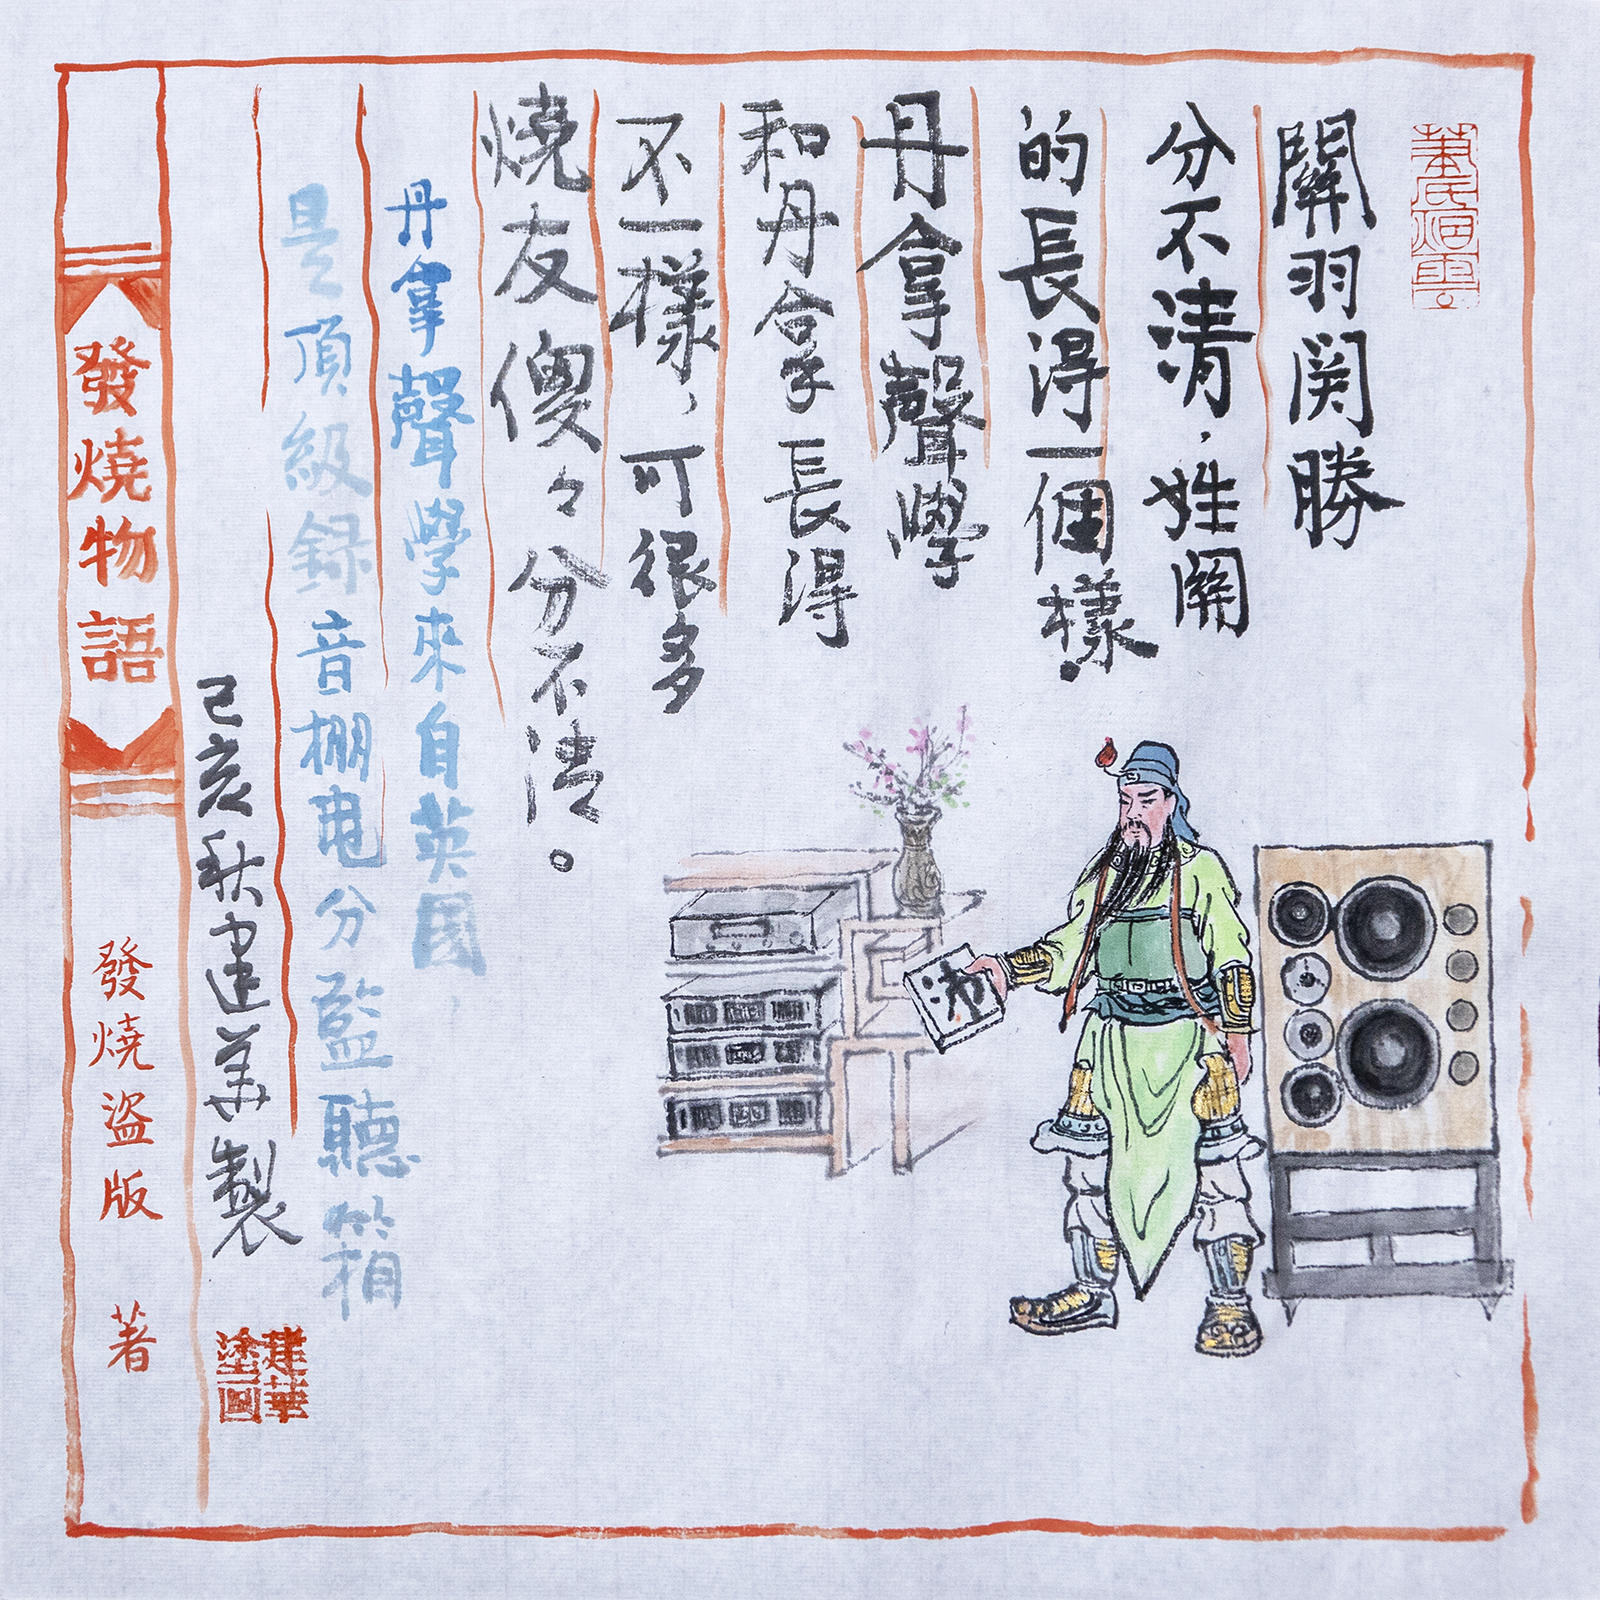 關羽関勝
分不清，姓關
的長得一個樣。
丹拿聲學
和丹拿長得
不一樣，可很多
燒友傻々分不清。
丹拿聲學來自英國，
是頂級録音棚电分監聽箱
己亥秋建華製
建華
塗圖
發燒物語
發燒盜版 著